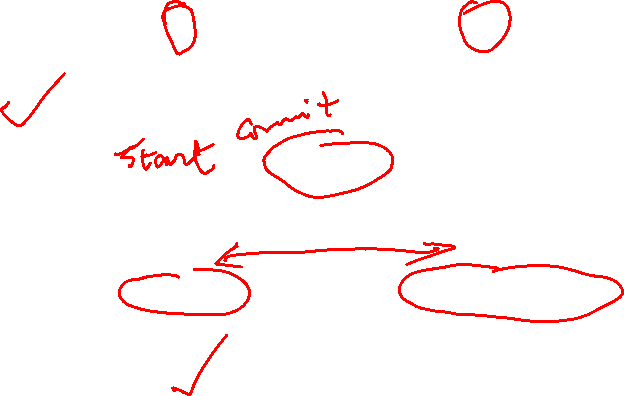 start commit